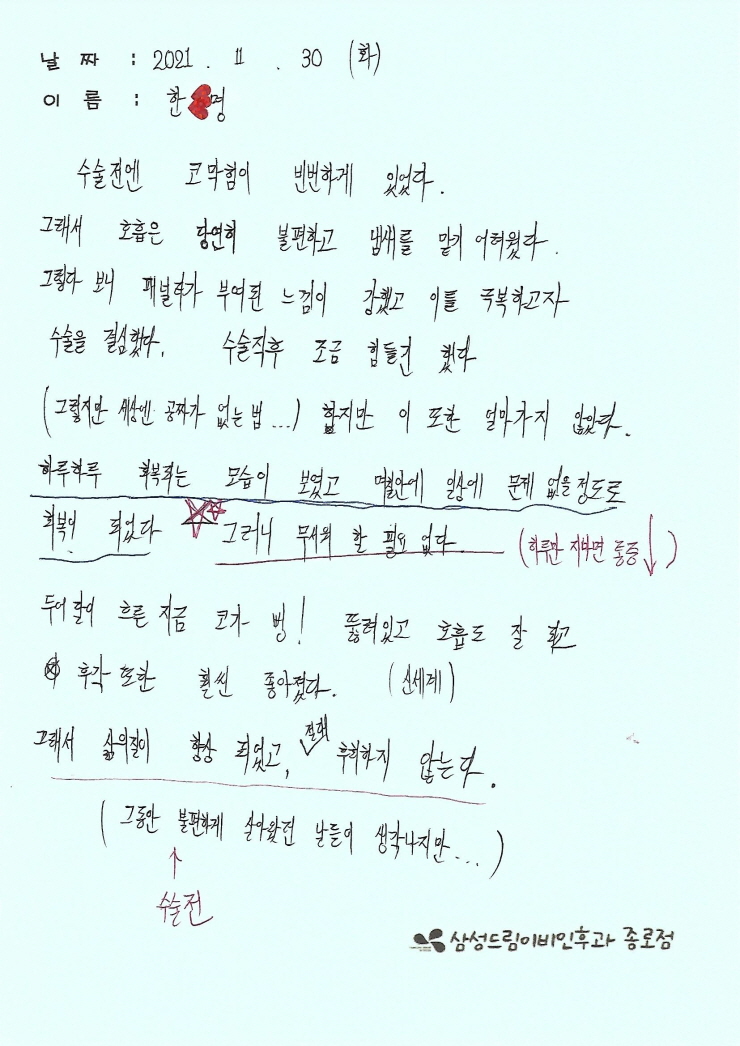 날 짜 : 2021 . 11 . 30 (화)
이 름 : 한 명
수술전엔 코막힘이 빈번하게 있었다.
그래서 호흡은 당연히 불편하고 냄새를 맡기 어려웠다.
그렇다 보니 패널티가 부여된 느낌이 강했고 이를 극복하고자
수술을 결심했다. 수술직후 조금 힘들긴 했다
(그렇지만 세상엔 공짜가 없는 법...) 합지만 이 또한 얼마가지 않았다.
하루하루 회복되는 모습이 보였고 며칠안에 일상에 문제 없을 정도로
회복이 되었다 그러니 무서워 할 필요 없다. (하루만 지나면 통증↓)
두어달이 흐른 지금 코가 뻥! 뚫려있고 호흡도 잘 되고
후각 또한 훨씬 좋아졌다. (신세계)
그래서 삶의질이 향상 되었고, 절대 후회하지 않는다.
(그동안 불편하게 살아왔던 날들이 생각나지만...)
↑
수술전
삼성드림이비인후과 종로점